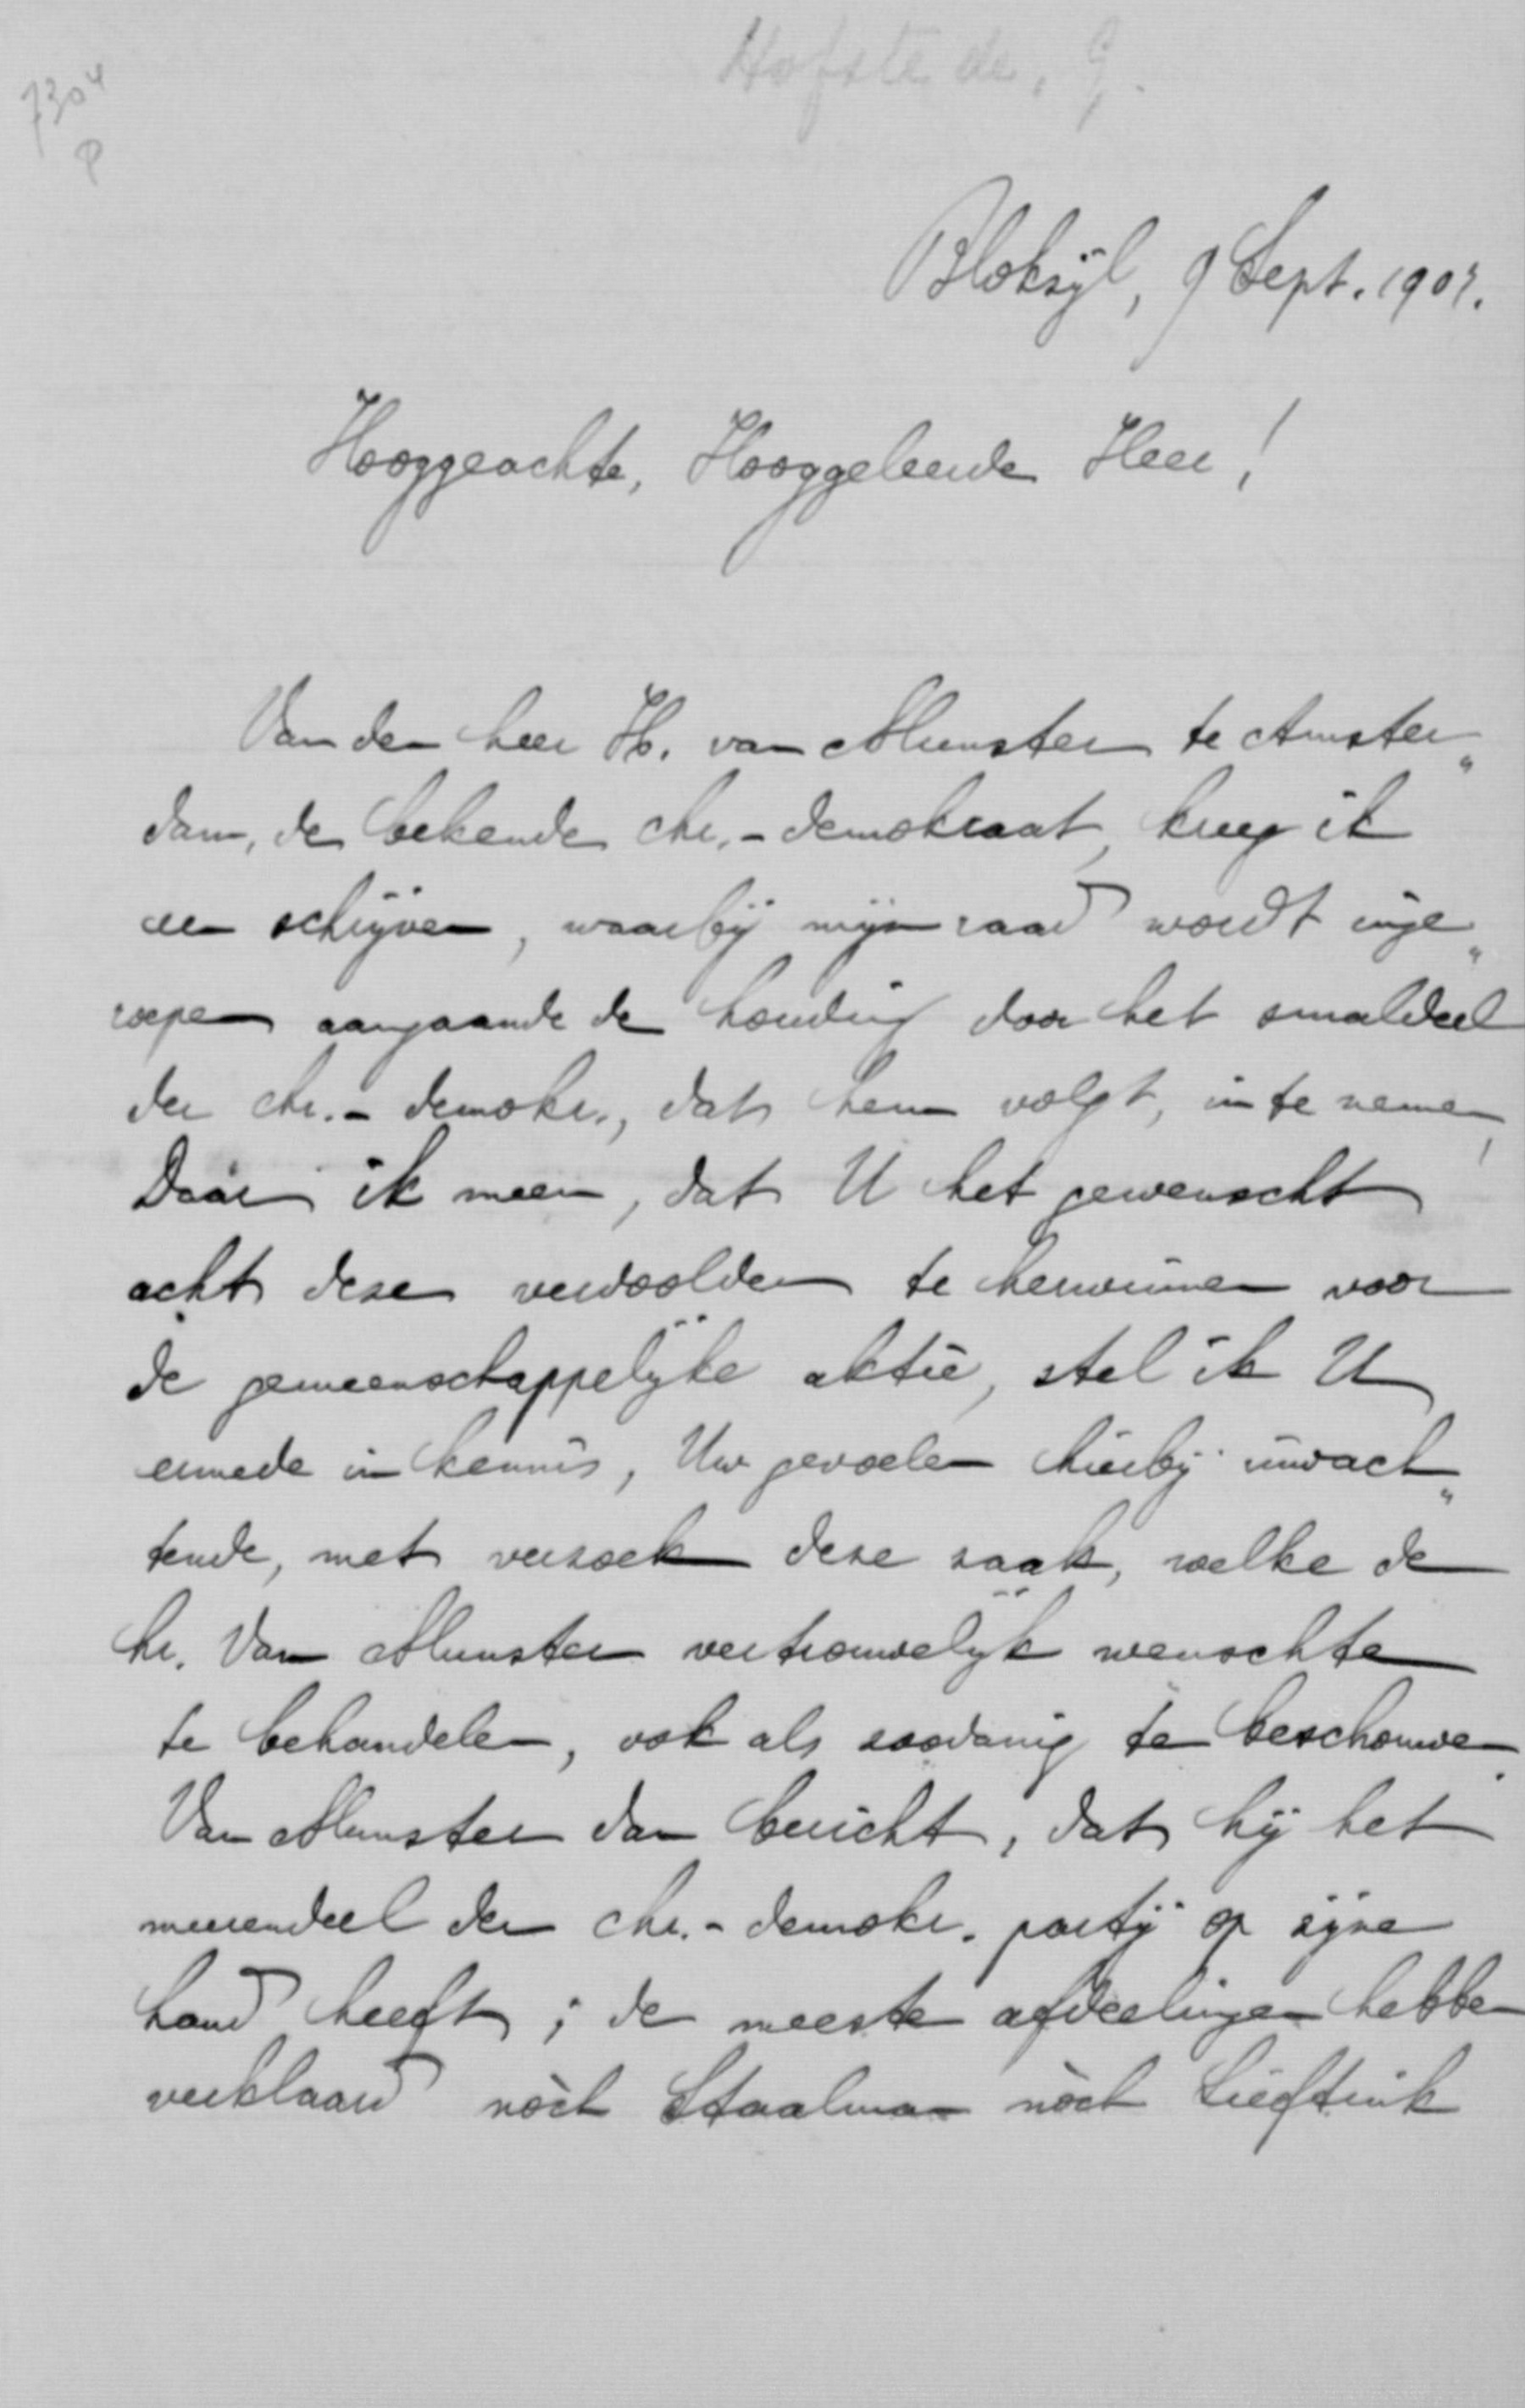 Hofstede, G.
7304
P
Bloksijl, 9 Sept. 1907.
Hooggeachte, Hooggeleerde Heer!
Van den heer H. van Munster te Amster„
dam, de bekende chr.-demokraat, kreeg ik
een schrijven, waarbij mijn raad wordt inge„
roepen aangaande de houding door het smaldeel
der chr.-demokr., dat hem volgt, in te nemen,
Daar ik meen, dat U het gewenscht
acht deze verdoolden te herwinnen voor
de gemeenschappelijke aktie, stel ik U
ermede in kennis, Uw gevoelen hierbij inwach„
tende, met verzoek deze zaak, welke de
hr. Van Munster vertrouwelijk wenschte
te behandelen, ook als zoodanig te beschouwen.
Van Munster dan bericht, dat hij het
meerendeel der chr.-demokr. partij op zijne
hand heeft; de meeste afdeelingen hebben
verklaard nòch Staalman nòch Lieftink